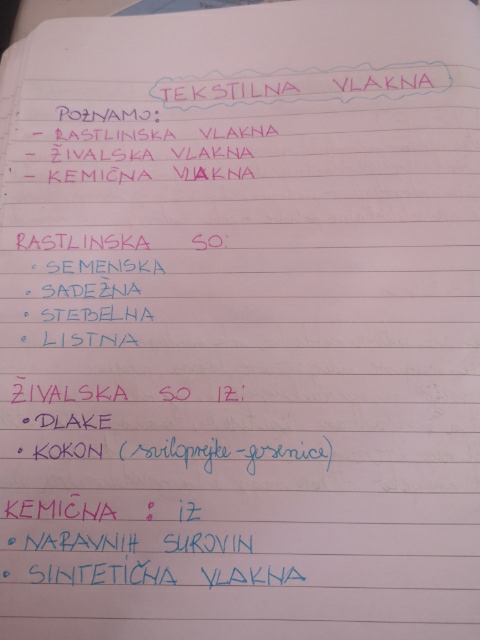 TEKSTILNA VLAKNA
POZNAMO:
- RASTLINSKA VLAKNA
- ŽIVALSKA VLAKNA
- KEMIČNA VLAKNA
RASTLINSKA SO:
• SEMENSKA
• SADEŽNA
• STEBELNA
• LISTNA
ŽIVALSKA SO IZ:
• DLAKE
• KOKON (sviloprejke-gosenice)
KEMIČNA : IZ
• NARAVNIH SUROVIN
• SINTETIČNA VLAKNA